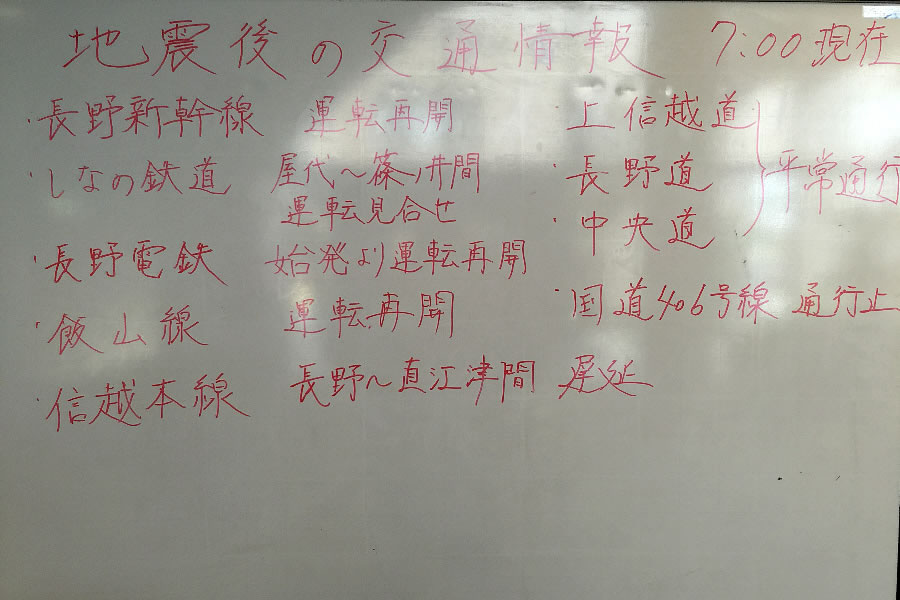 地震後の交通情報 7:00現在
・長野新幹線 運転再開
・しなの鉄道 屋代〜篠ノ井間
運転見合せ
・長野電鉄 始発より運転再開
・飯山線 運転再開
・信越本線 長野〜直江津間 遅延
・上信越道
・長野道
・中央道
平常通行
・国道406号線 通行止